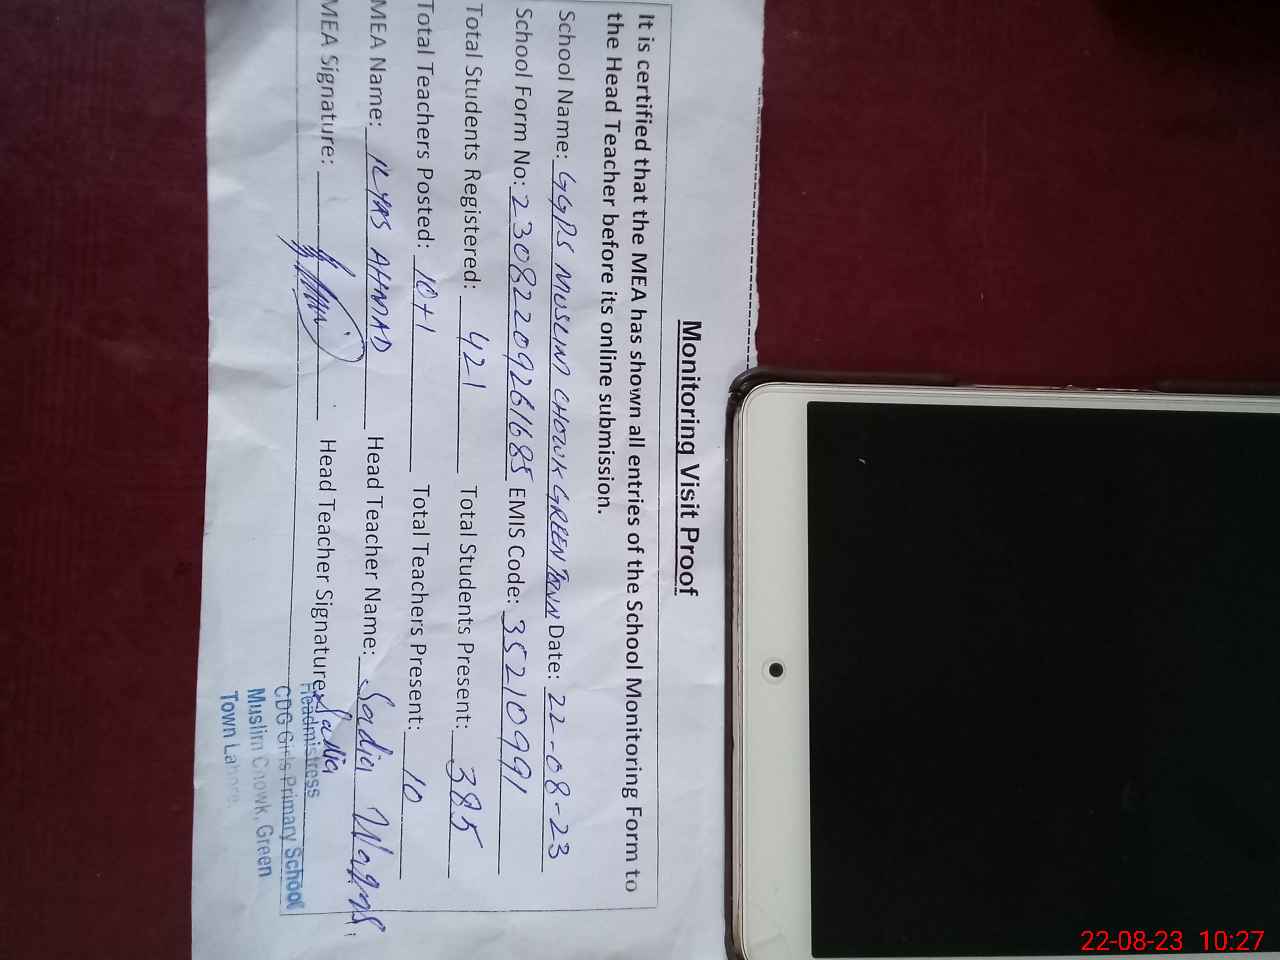 Monitoring Visit Proof
It is certified that the MEA has shown all entries of the School Monitoring Form to
the Head Teacher before its online submission.
School Name: GGPS MUSLIM CHOWK GREEN TOWN Date: 22-08-23
School Form No: 23082209261685 EMIS Code: 35210991
Total Students Registered: 421 Total Students Present: 385
Total Teachers Posted: 10+1 Total Teachers Present: 10
MEA Name: ILYAS AHMAD Head Teacher Name: Sadia
MEA Signature: Head Teacher Signature: Sadia
Headmistress
CDG Girls Primary School
Muslim Chowk, Green
Town Lahore.
22-08-23 10:27